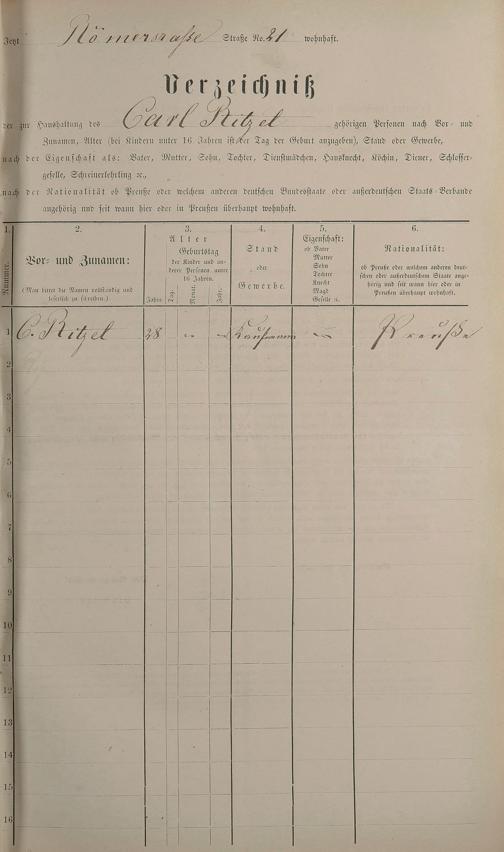 Jetzt Römerstraße Straße No. 21 wohnhaft.
Verzeichniß
der zur Haushaltung des Carl Ritzel gehörigen Personen nach Vor- und
Zunamen, Alter (bei Kindern unter 16 Jahren ist der Tag der Geburt anzugeben), Stand oder Gewerbe,
nach der Eigenschaft als: Vater, Mutter, Sohn, Tochter, Dienstmädchen, Hausknecht, Köchin, Diener, Schlosser-
geselle, Schreinerlehrling ꝛc.,
nach der Nationalität ob Preuße oder welchem anderen deutschen Bundesstaate oder außerdeutschen Staats-Verbande
angehörig und seit wann hier oder in Preußen überhaupt wohnhaft.
1.
Nummer.
2.
Vor- und Zunamen:
(Man bittet die Namen vollständig und
leserlich zu schreiben.)
3.
Alter
Geburtstag
der Kinder und an-
derer Personen unter
16 Jahren.
Jahre.
Tag.
Monat.
Jahr.
4.
Stand
oder
Gewerbe.
5.
Eigenschaft:
ob Vater
Mutter
Sohn
Tochter
Knecht
Magd
Geselle ꝛc.
6.
Nationalität:
ob Preuße oder welchem anderen deut-
schen oder außerdeutschem Staate ange-
hörig und seit wann hier oder in
Preußen überhaupt wohnhaft.
1 C. Ritzel 28 - - - Kaufmann - Preuße
2
3
4
5
6
7
8
9
10
11
12
13
14
15
16